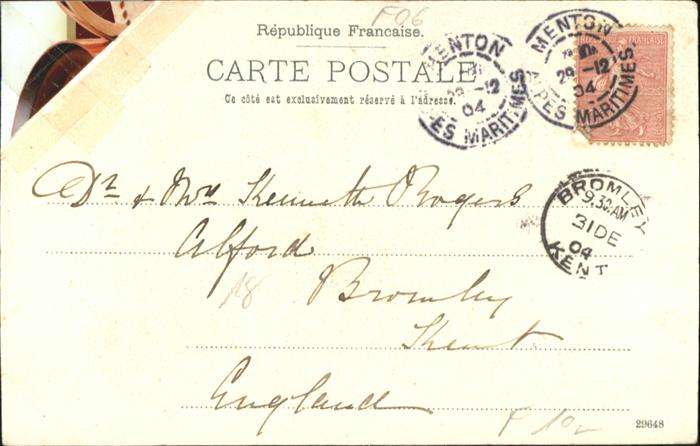 F96
République Francaise.
CARTE POSTALE
Ce côté est exclusivement réservé à l'adresse.
MENTON
29-12
04
ALPES MARITIMES
MENTON
29-12
04
ALPES MARITIMES
BROMLEY
9.30AM
31DE
04
KENT
Dr & Mrs Kenneth Rogers
Alford
18
Bromley
Kent
England
29648